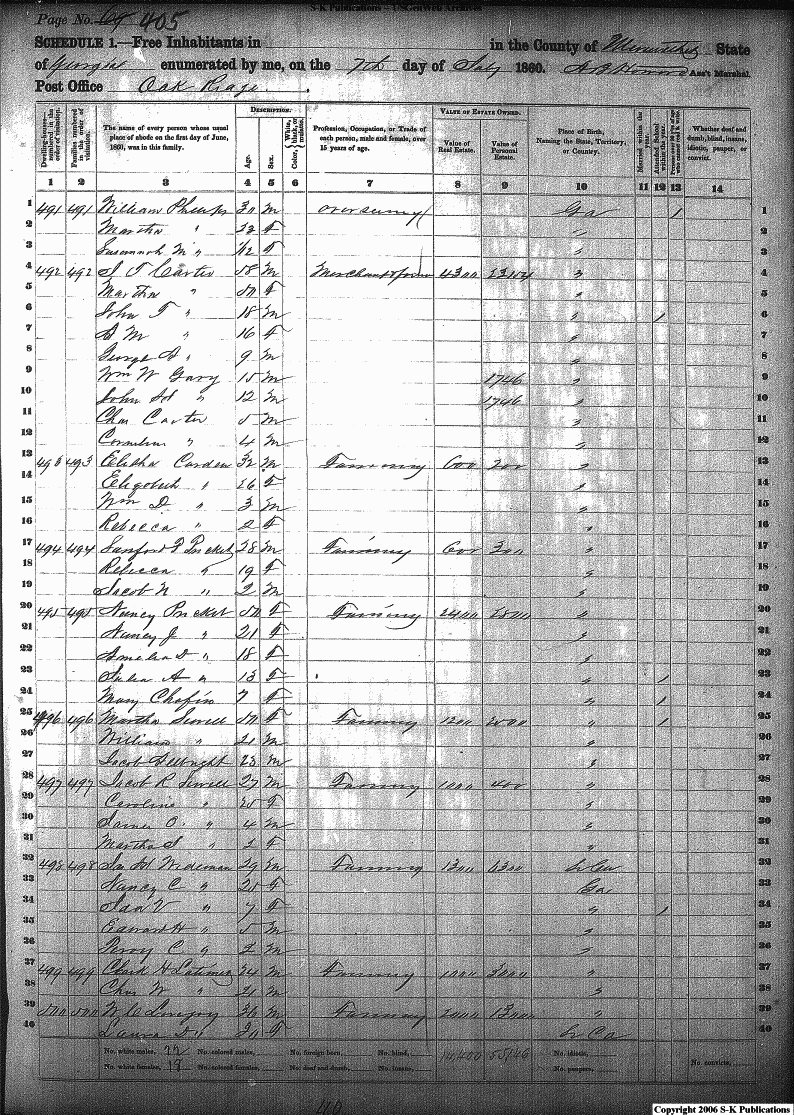 S-K Publications - USGenWeb Archives
Page No. 405
SCHEDULE 1.—Free Inhabitants in in the County of Meriwether State
of Georgia enumerated by me, on the 7th day of July 1860. Ass't Marshal.
Post Office Oak Ridge
Dwelling-houses—numbered in the order of visitation. Families numbered in the order of visitation. The name of every person whose usual place of abode on the first day of June, 1860, was in this family. DESCRIPTION. Age. Sex. Color, {White, black, or mulatto. Profession, Occupation, or Trade of each person, male and female, over 15 years of age. VALUE OF ESTATE OWNED. Value of Real Estate. Value of Personal Estate. Place of Birth, Naming the State, Territory, or Country. Married within the year. Attended School within the year. Persons over 20 y'rs of age who cannot read & write. Whether deaf and dumb, blind, insane, idiotic, pauper, or convict.
1 2 3 4 5 6 7 8 9 10 11 12 13 14
1 491 491 William Phillips 30 M Ga 1 1
2 Martha " 22 F " 2
3 Susannah M " 1/12 F " 3
4 492 492 Carter 58 M Merchant & farmer 4300 " 4
5 Martha " 50 F " 5
6 John T " 18 M " 1 6
7 S M " 16 F " 7
8 George " 9 M " 8
9 Wm W Gary 15 M 1746 " 9
10 John H " 12 M 1746 " 10
11 Chas Carter 5 M " 11
12 Cornelius " 4 M " 12
13 493 493 Elisha Carden 32 M Farming 600 200 " 13
14 " 26 F " 14
15 Wm D " 3 M " 15
16 Rebecca " 2 F " 16
17 494 494 Sanford Pricket 28 M Farming 600 300 " 17
18 Rebecca " 19 F " 18
19 Jacob N " 2 M " 19
20 495 495 Nancy Pricket 50 F Farming 2400 1800 " 20
21 Nancy J " 21 F " 21
22 Amelia " 18 F " 22
23 Julia A " 13 F " 1 23
24 Mary Chafin 7 F " 1 24
25 496 496 Martha Sewell 50 F Farming 1200 2000 " 1 25
26 William " 21 M " 26
27 Jacob 23 M " 27
28 497 497 Jacob R Sewell 27 M Farming 1000 400 " 28
29 Caroline " 25 F " 29
30 James O. " 4 M " 30
31 Martha S " 2 F " 31
32 498 498 Wideman 29 M Farming 1300 6300 32
33 Nancy C " 25 F Ga 33
34 " 7 F " 1 34
35 Edward H " 5 M " 35
36 Perry C " 2 M " 36
37 499 499 Clark H Latimer 24 M Farming 1000 3000 " 37
38 Chas W " 21 M " 38
39 500 500 W C 36 M Farming 2000 1300 " 39
40 Laura " 30 F 40
No. white males, 22 No. colored males, No. foreign born, No. blind, 14,400 No. idiotic,
No. white females, 18 No. colored females, No. deaf and dumb, No. insane, No. paupers, No. convicts,
Copyright 2006 S-K Publications